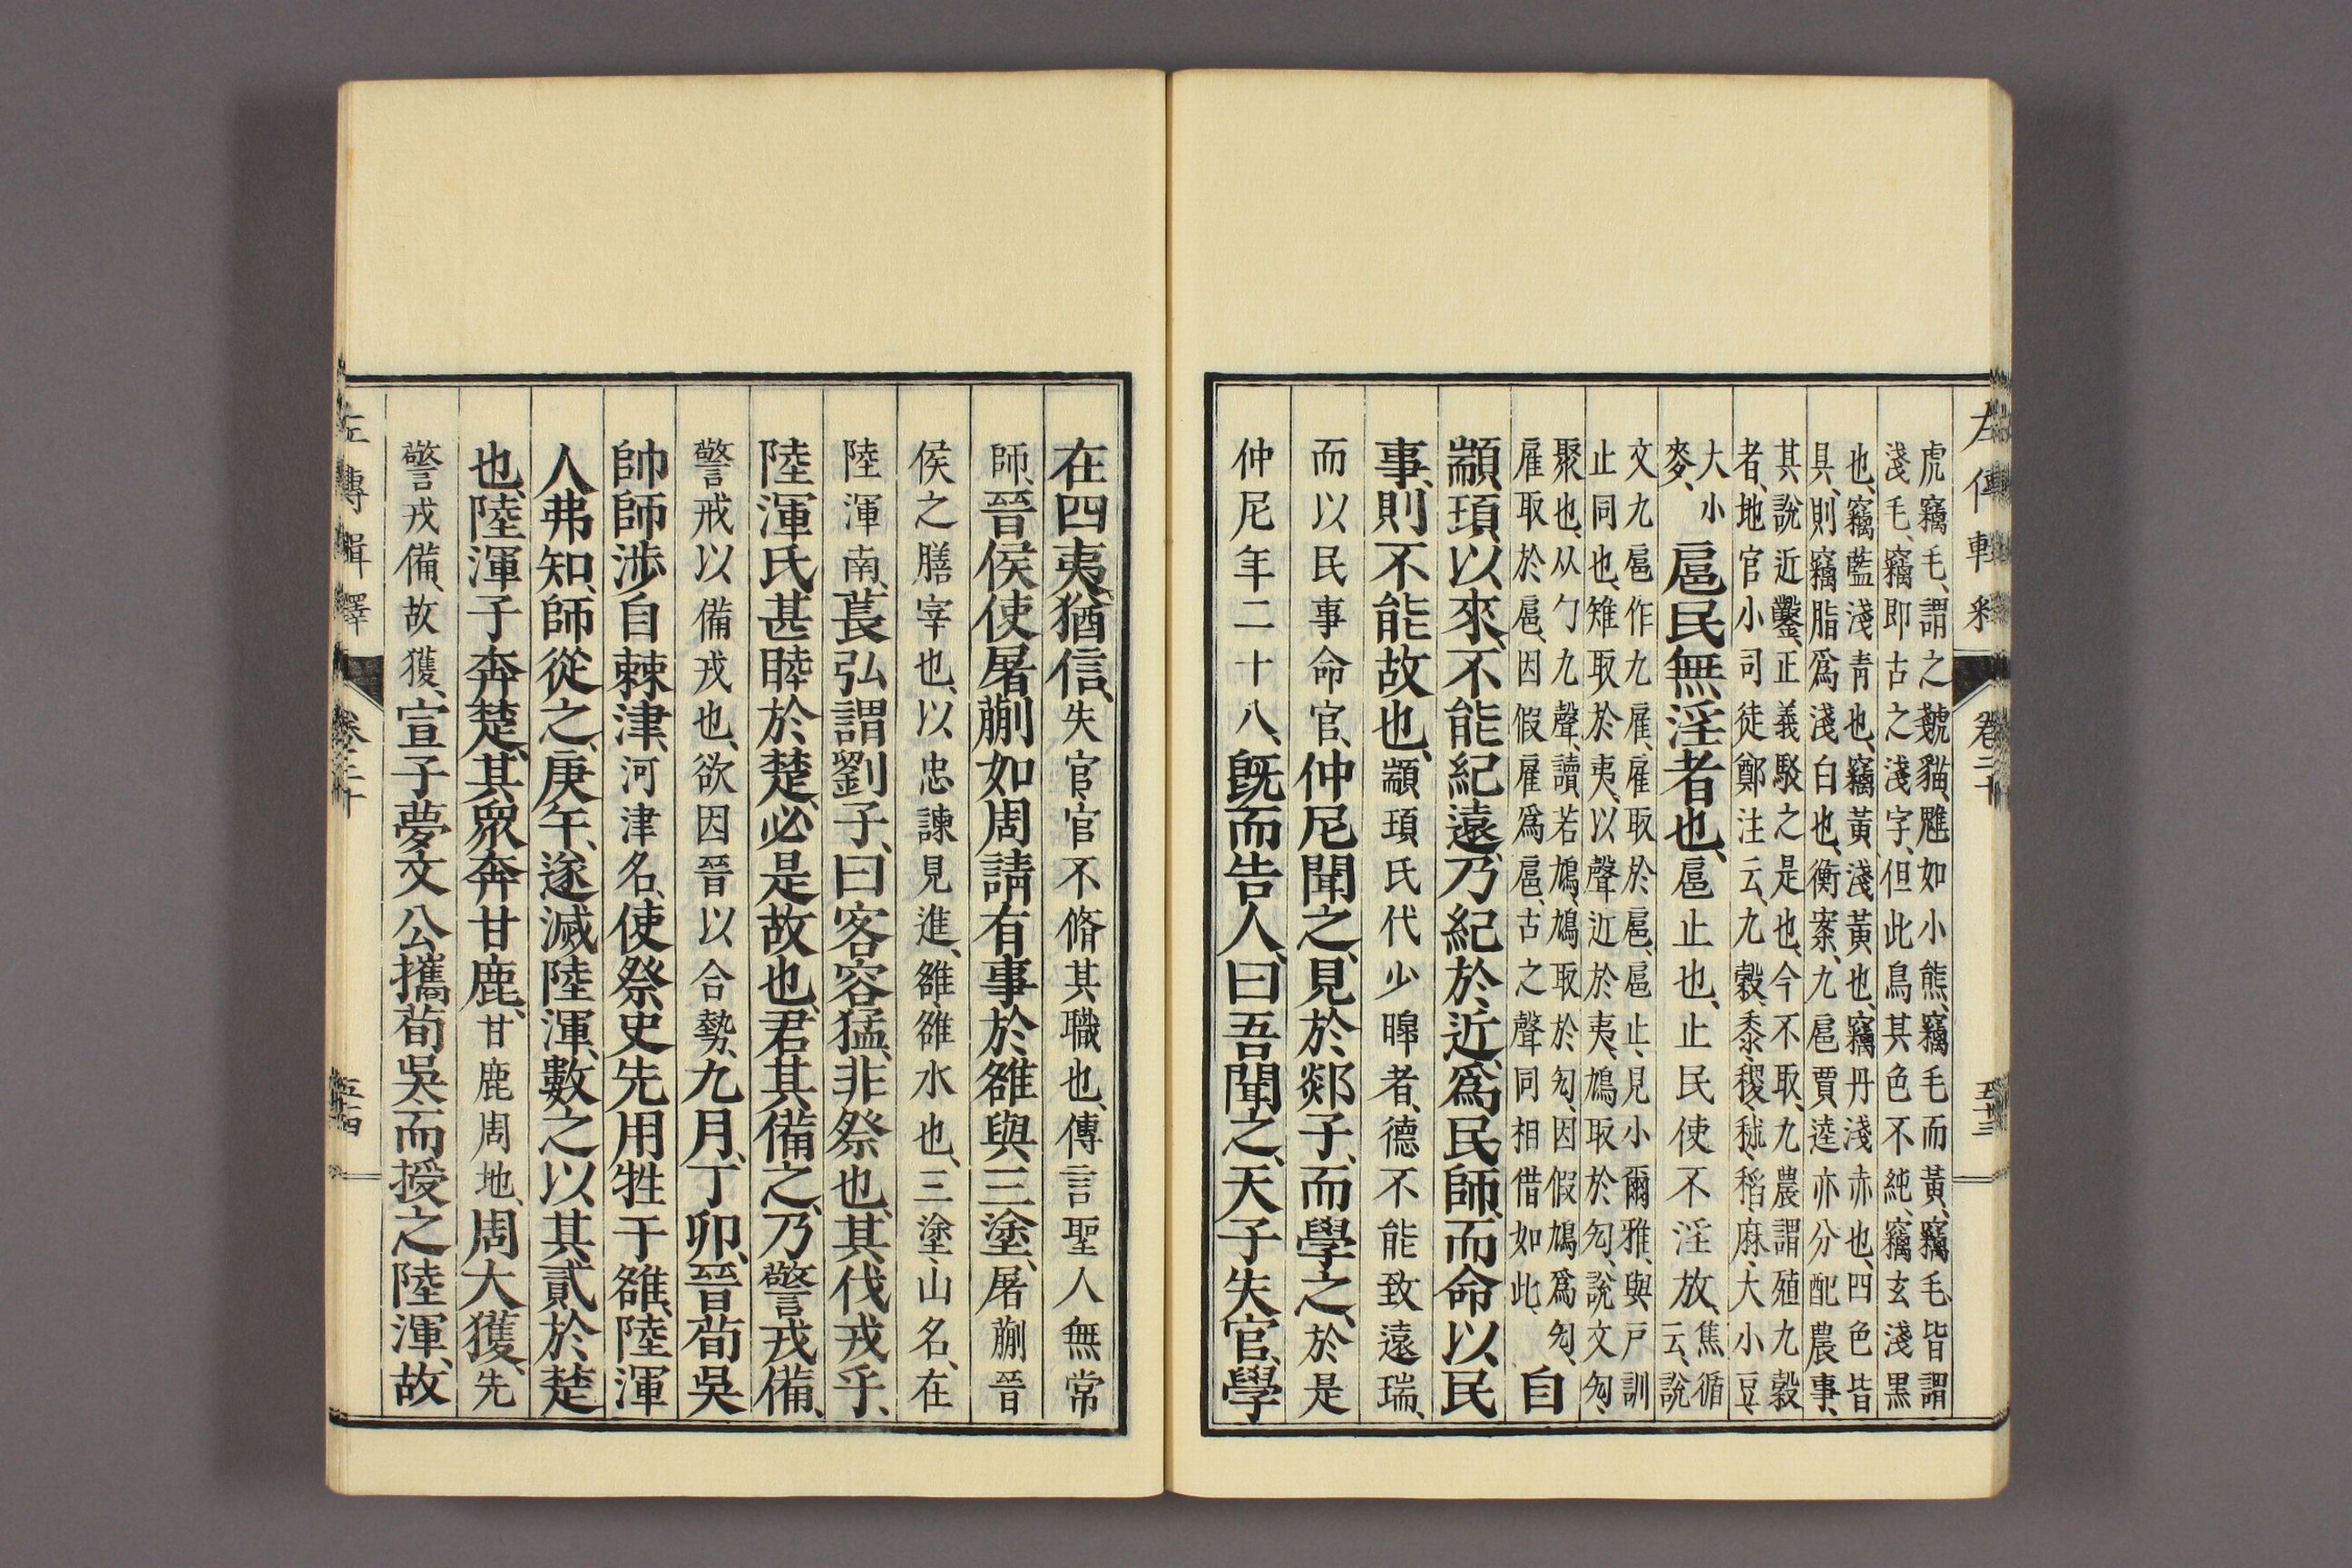 左傳輯釋　卷二十　五十三
虎竊毛、謂之虦貓、魋如小熊、竊毛而黃、竊毛皆謂
淺毛、竊即古之淺字、但此鳥其色不純、竊玄淺黑
也、竊藍淺青也、竊黃淺黃也、竊丹淺赤也、四色皆
具、則竊脂爲淺白也、衡案、九扈賈逵亦分配農事、
其說近鑿、正義駁之是也、今不取、九農謂殖九穀
者、地官小司徒鄭注云、九穀、黍、稷、秫、稻、麻、大小豆、
大小
麥、
扈民無淫者也、扈止也、止民使不淫放、
焦循
云、說
文九扈作九雇、雇取於扈、扈止、見小爾雅、與戶訓
止同也、雉取於夷、以聲近於夷、鳩取於勼、說文勼、
聚也、从勹九聲、讀若鳩、鳩取於勼、因假鳩爲勼、
雇取於扈、因假雇爲扈、古之聲同相借如此、
自
顓頊以來、不能紀遠、乃紀於近、爲民師、而命以民
事、則不能故也、顓頊氏代少皥者、德不能致遠瑞、
而以民事命官、仲尼聞之、見於郯子、而學之、於是
仲尼年二十八、既而告人、曰吾聞之、天子失官、學
在四夷、猶信、失官、官不脩其職也、傳言聖人無常
師、晉侯使屠蒯如周請有事於雒與三塗、屠蒯晉
侯之膳宰也、以忠諫見進、雒、雒水也、三塗、山名、在
陸渾南、萇弘謂劉子、曰客容猛、非祭也、其伐戎乎、
陸渾氏甚睦於楚、必是故也、君其備之、乃警戎備、
警戒以備戎也、欲因晉以合勢、九月、丁卯、晉荀吳
帥師涉自棘津、河津名、使祭史先用牲于雒、陸渾
人弗知、師從之、庚午、遂滅陸渾、數之以其貳於楚
也、陸渾子奔楚、其眾奔甘鹿、甘鹿周地、周大獲、先
警戎備、故獲、宣子夢文公攜荀吳而授之陸渾、故
左傳輯釋　卷二十　五十四